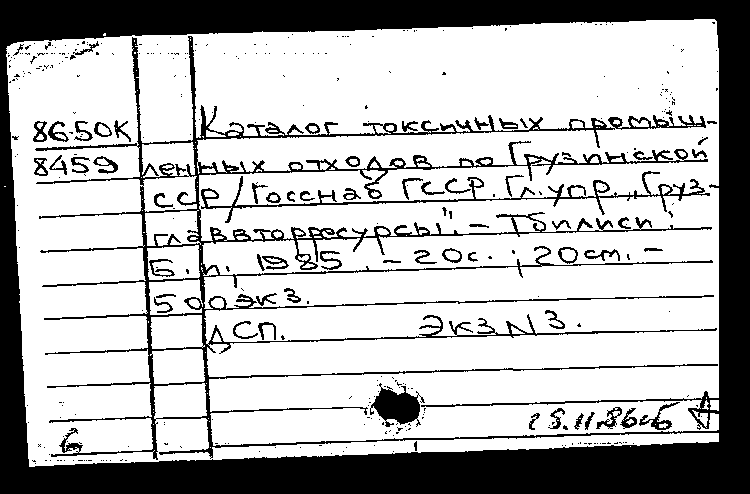 86-50К Каталог токсичных промыш-
8459 ленных отходов по Грузинской
ССР/Госснаб ГССР. Гл. упр. „Груз-
главвторресурсы". - Тбилиси:
Б. и., 1985. - 20с.; 20см. -
500экз.
ДСП. Экз N 3.
28.11.86
6